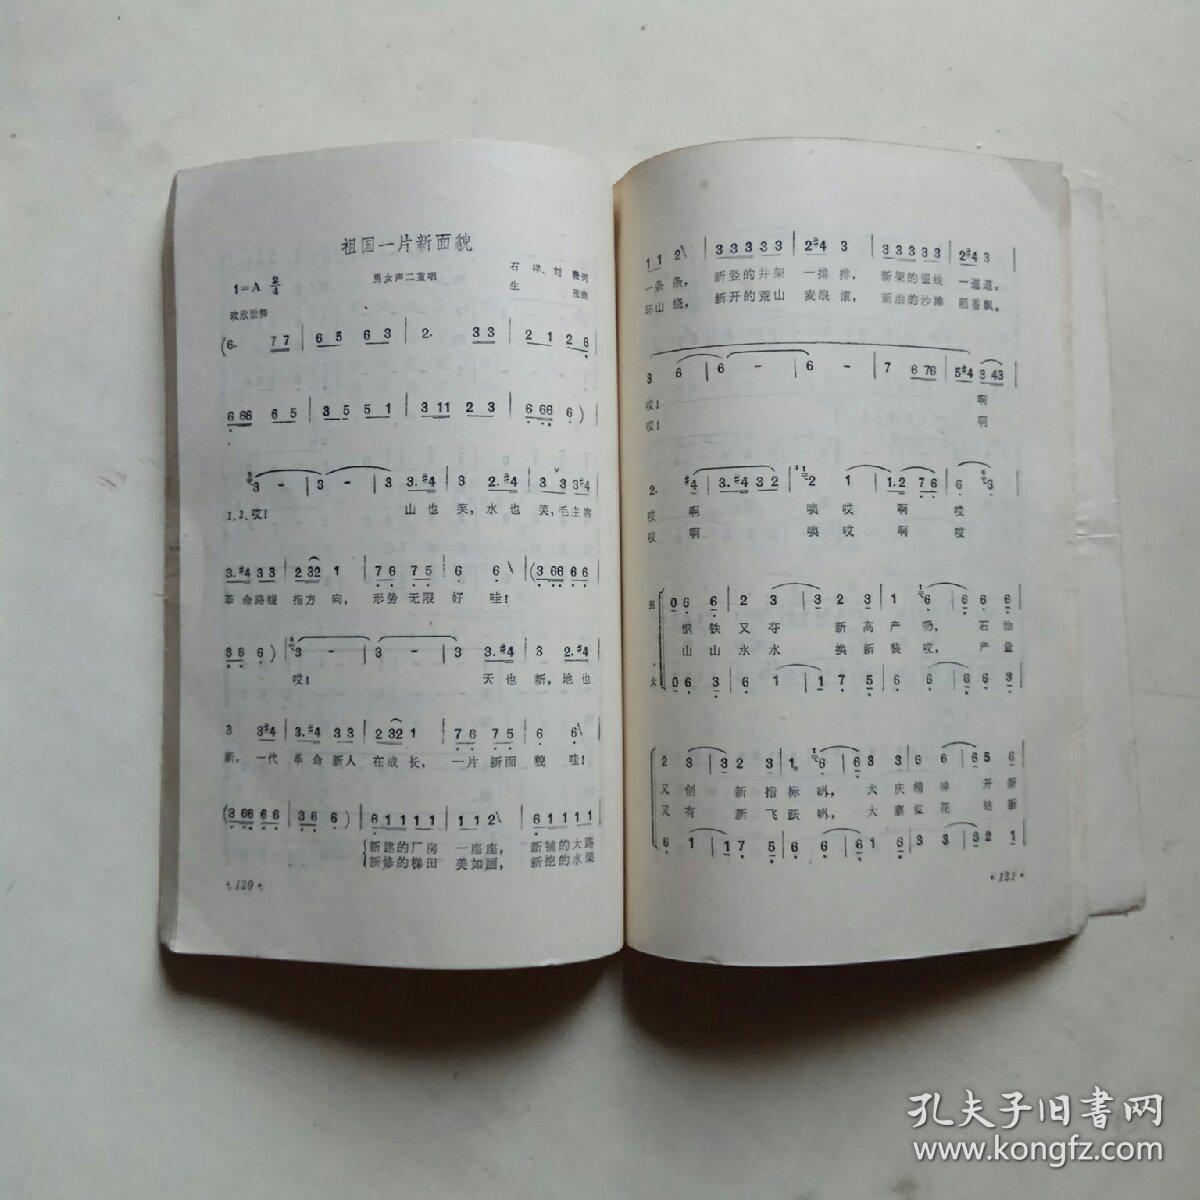 祖国一片新面貌
男女声二重唱
石祥、刘 词
生 曲
1=A 2/4
欢欣鼓舞
(6. 77 | 65 63 | 2. 33 | 21 26 |
666 65 | 35 51 | 311 23 | 666 6) |
3 - | 3 - | 3 3.#4 | 3 2.#4 | 3 33#4 |
1.2.哎! 山也笑,水也笑,毛主席
3.#433 | 232 1 | 76 75 | 6 6 | (36666 |
革命路线 指方向, 形势无限好哇!
366) | 3 - | 3 - | 3 3.#4 | 3 2.#4 |
哎! 天也新,地也
3 3#4 | 3.#4 33 | 232 1 | 76 75 | 6 6 |
新,一代 革命新人 在成长, 一片新面貌哇!
(36666 | 366) | 61111 | 112 | 61111 |
新建的厂房 一座座, 新铺的大路
新修的梯田 美如画, 新挖的水渠
·120·
112 | 33333 | 2#43 | 33333 | 2#43 |
一条条, 新竖的井架 一排排, 新架的银线 一道道。
环山绕, 新开的荒山 麦浪滚, 新治的沙滩 稻香飘。
3 6 | 6 - | 6 - | 7 676 | 5#4 343 |
哎! 啊
哎! 啊
2. #4 | 3.#432 | 2 1 | 1.2 76 | 6 3 |
哎 啊 噢哎 啊 哎
哎 啊 噢哎 啊 哎
男 06 6 | 2 3 | 3 23 | 1 6 | 6 66 |
钢铁又夺 新高产哟, 石油
山山水水 换新装哎, 产量
女 06 3 | 6 1 | 1 75 | 6 6 | 6 63 |
2 3 | 323 | 1. 6 | 633 | 6 6 | 656 |
又创 新指标呐, 大庆精神 开新
又有 新飞跃呐, 大寨红花 结新
6 1 | 175 | 6 6 | 622 | 3 3 | 321 |
·121·
孔夫子旧书网
www.kongfz.com